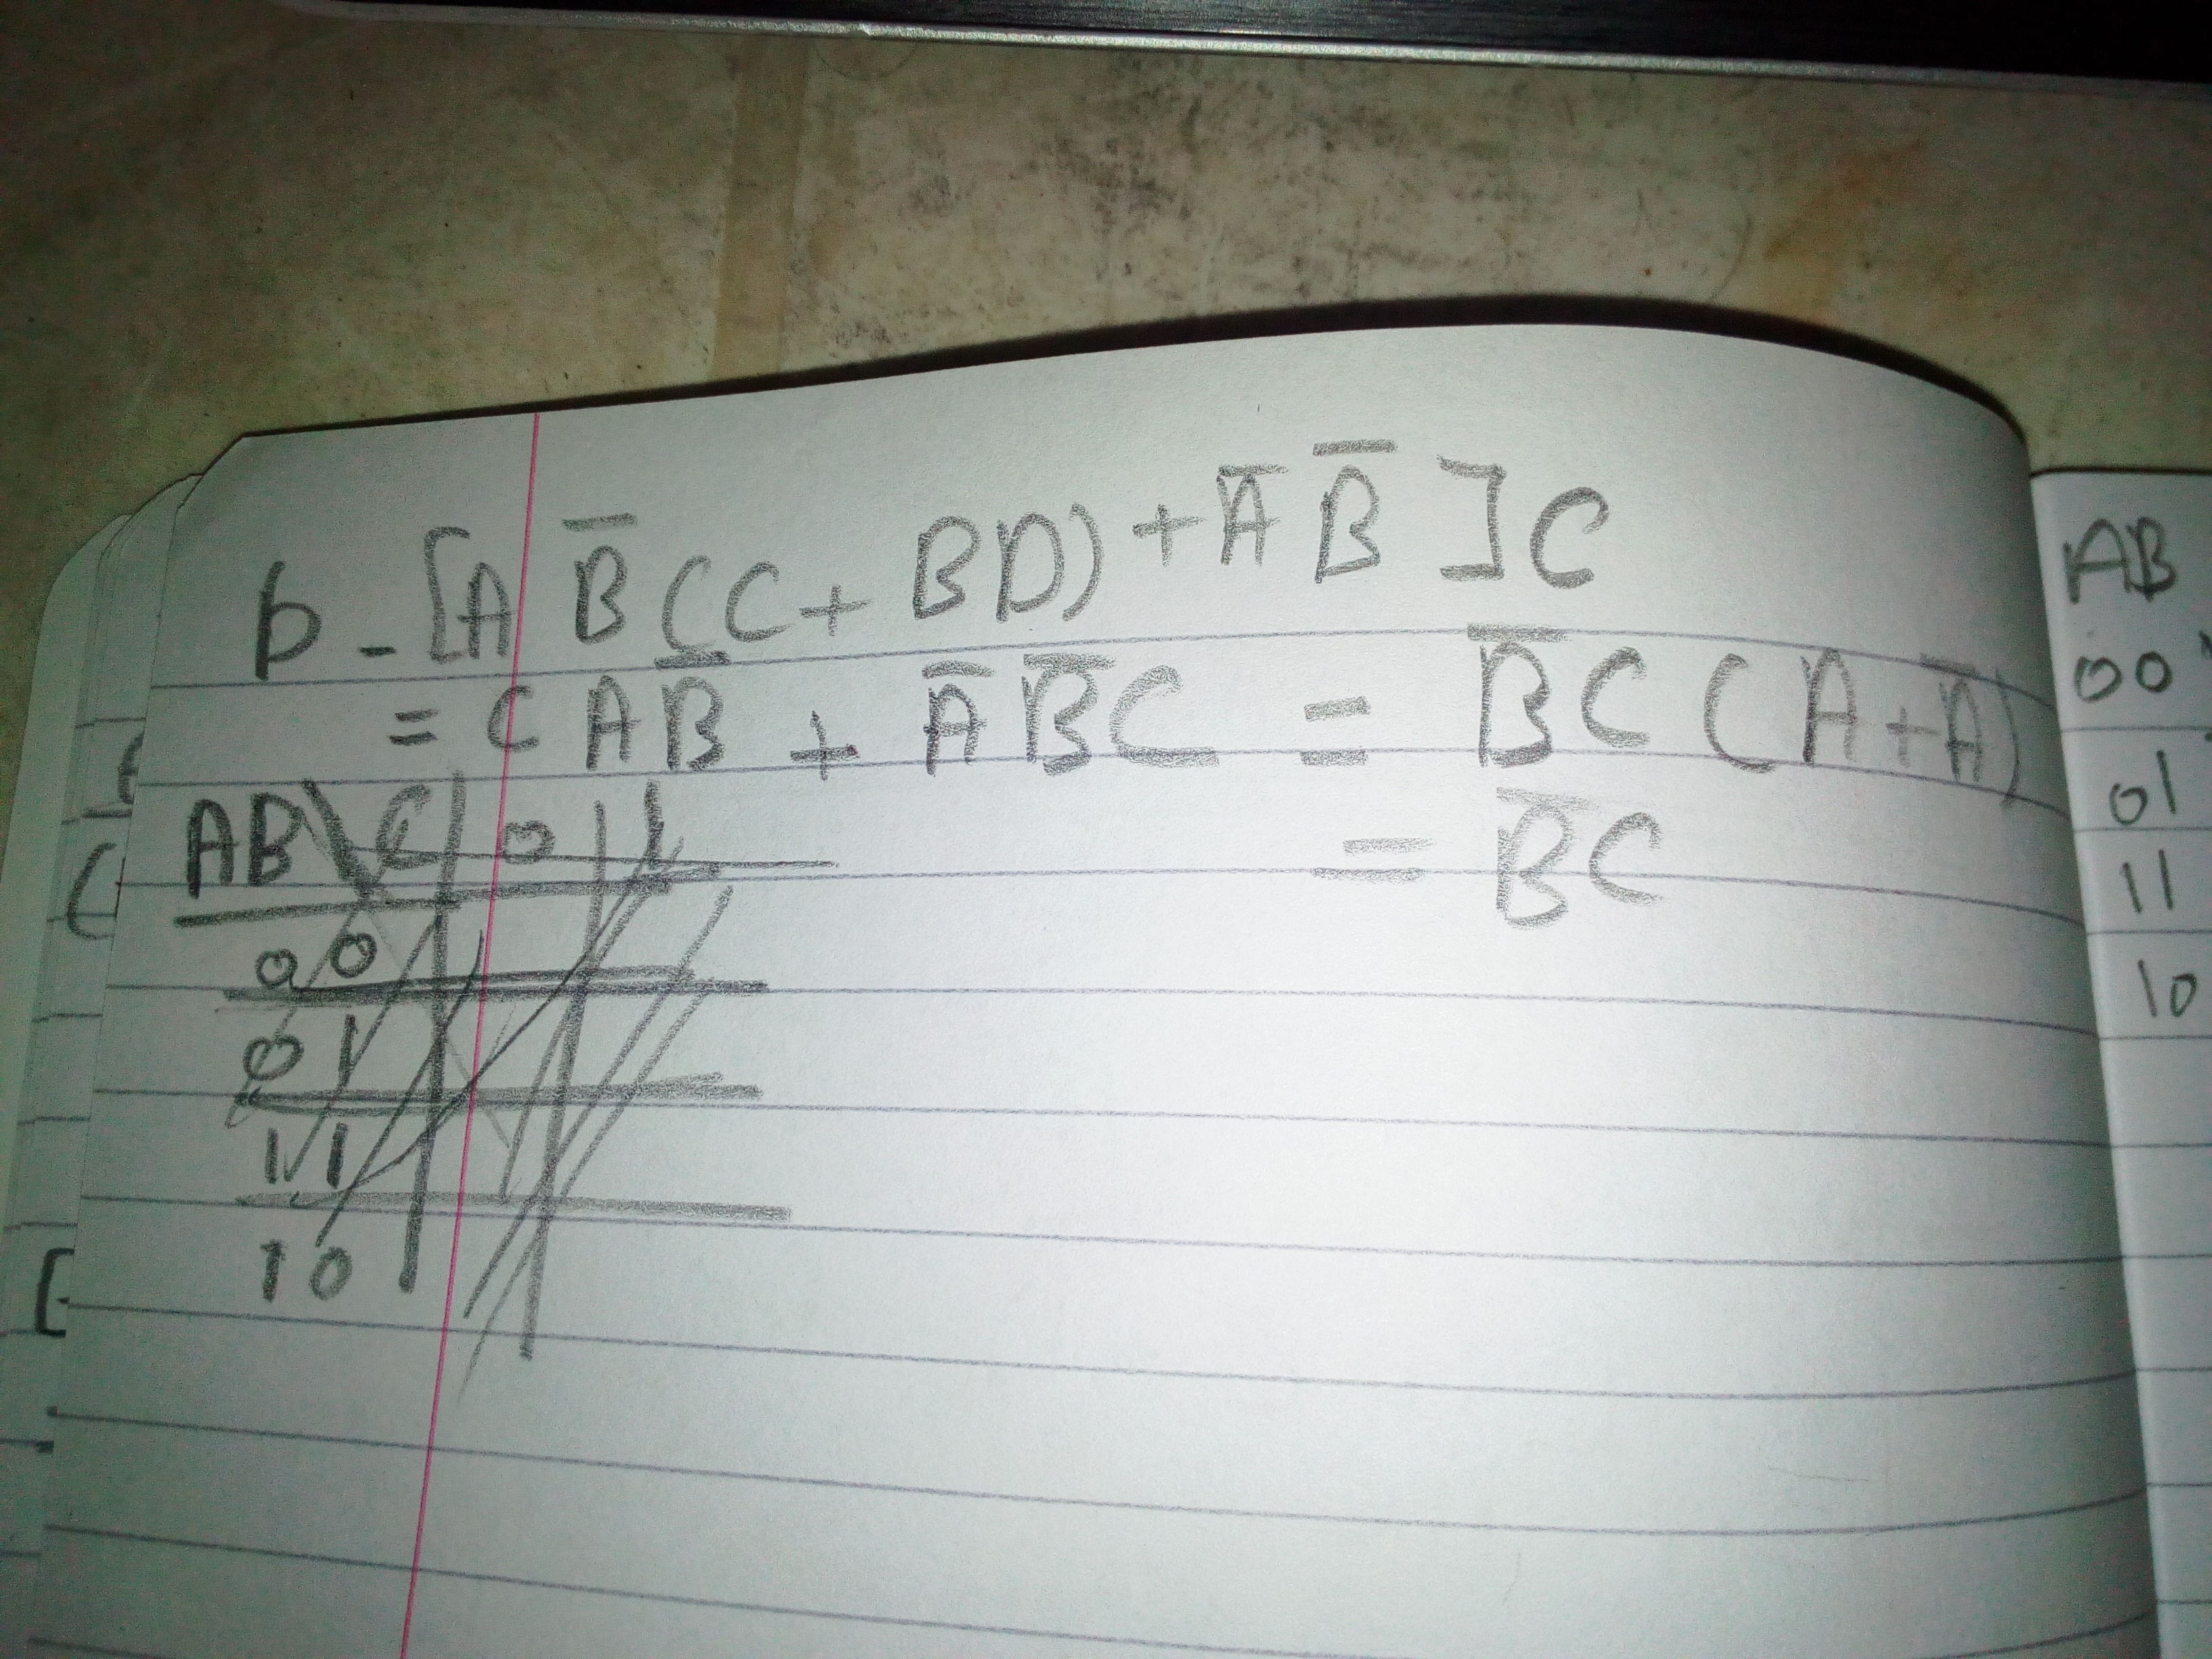 b - [A B̅ (C + BD) + A̅ B̅ ] C
= C A B̅ + A̅ B̅ C = B̅ C ( A + A̅ )
= B̅ C
AB \ C 0 1
0 0
0 1
1 1
1 0
AB
00
01
11
10